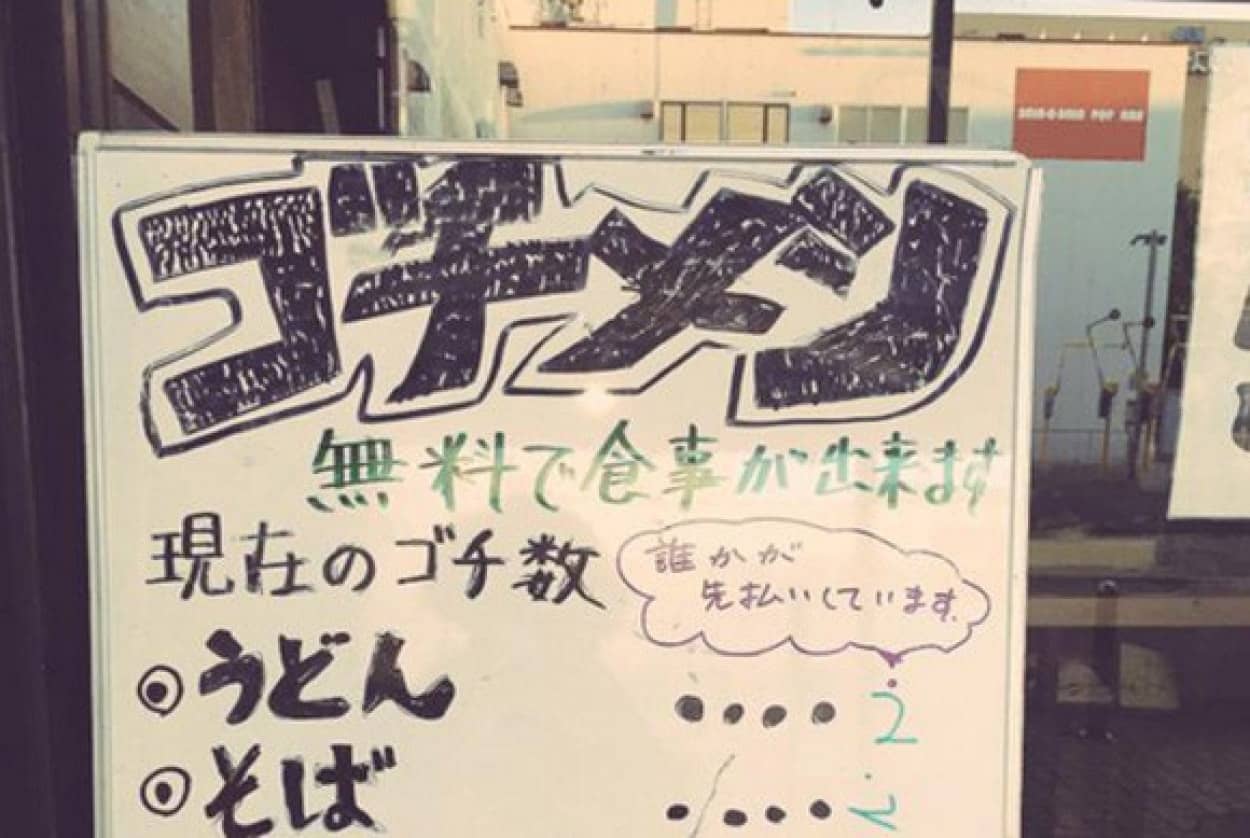 ゴチメン
無料で食事が出来ます
現在のゴチ数
誰かが
先払いしています。
◉うどん ・・・・ 2
◉そば ・・・・